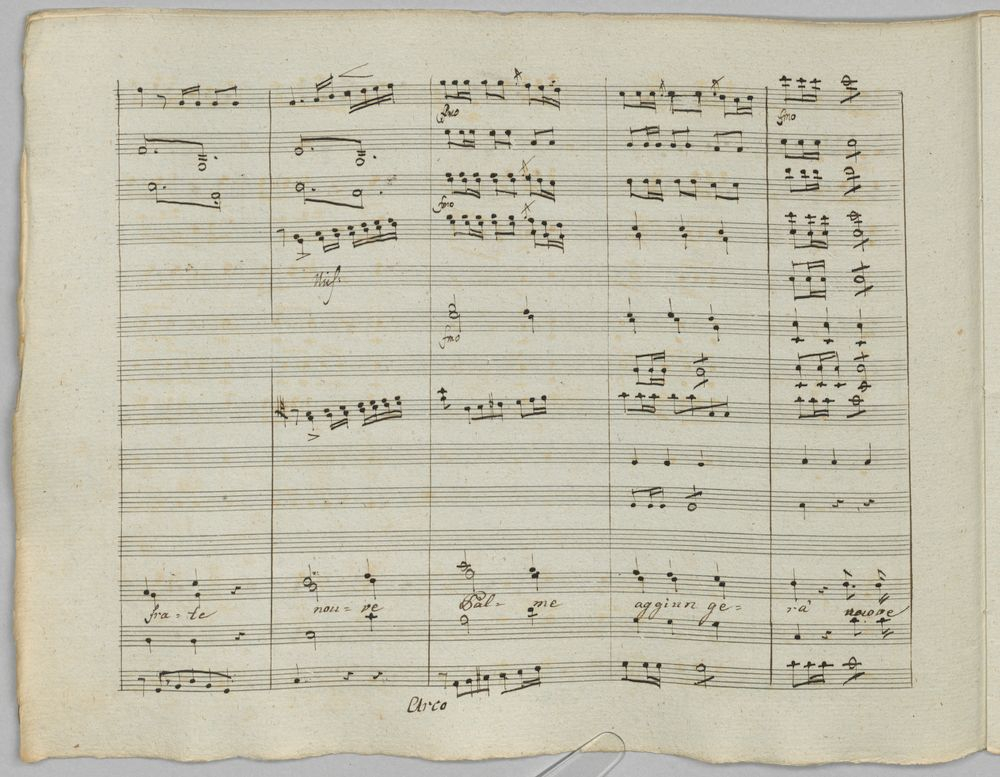 fmo
fmo
fmo
fmo
fra=te nou=ve Pal=me aggiun ge=rà nuove
Arco